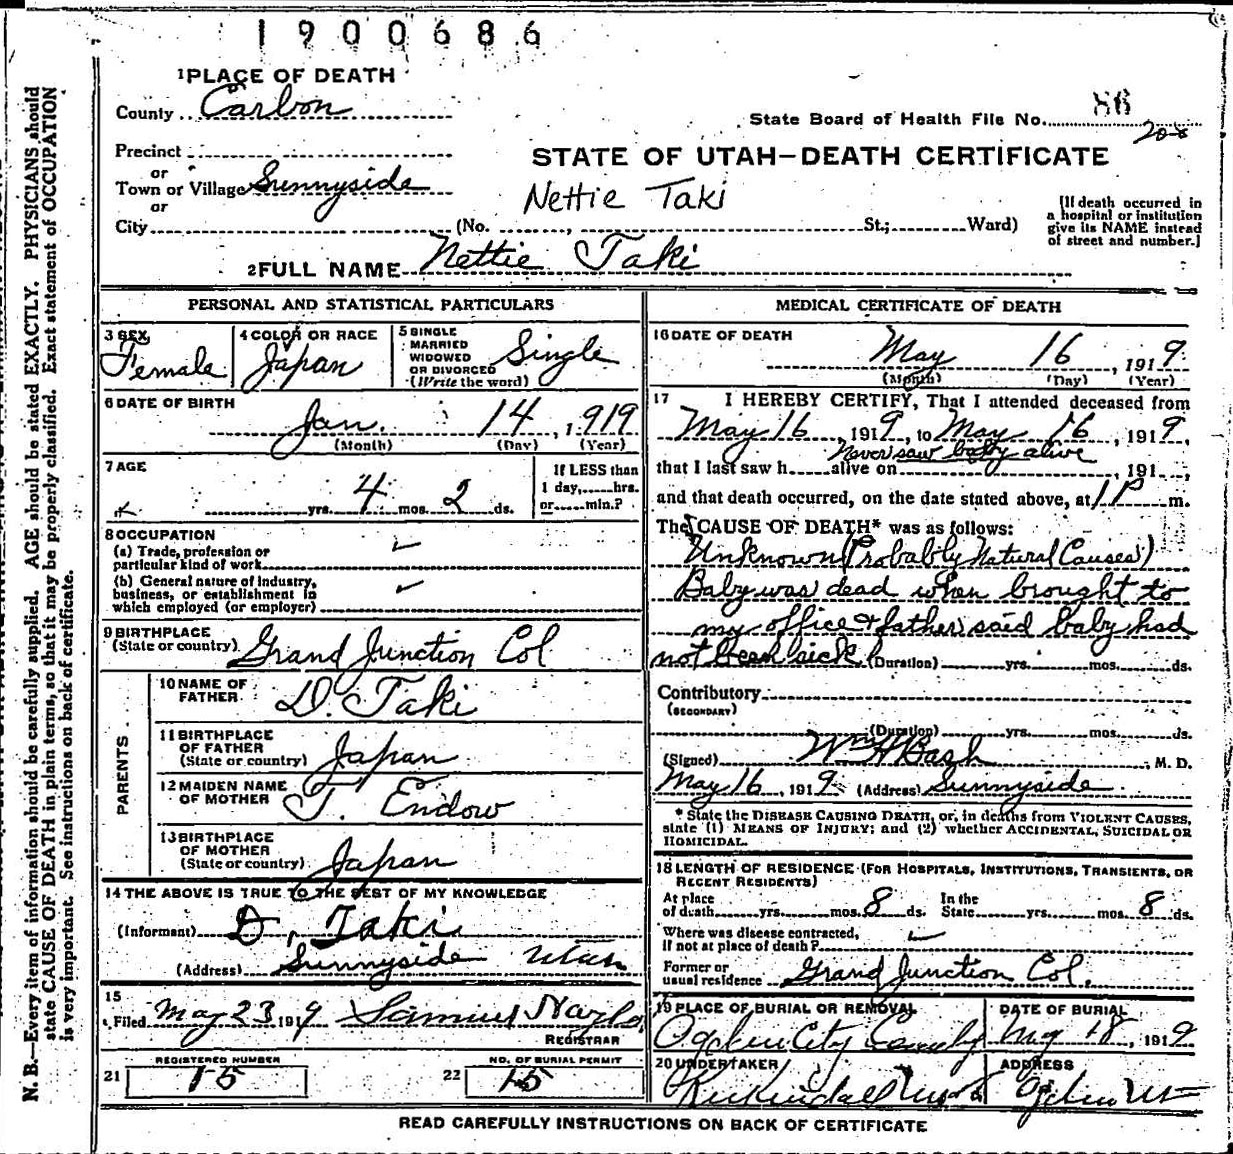 1900686
1 PLACE OF DEATH
County Carbon
State Board of Health File No. 86
208
Precinct
or
STATE OF UTAH—DEATH CERTIFICATE
Town or Village Sunnyside
Nettie Taki
or
City (No. , St.; Ward)
[If death occurred in
a hospital or institution
give its NAME instead
of street and number.]
2 FULL NAME Nettie Taki
PERSONAL AND STATISTICAL PARTICULARS
3 SEX
Female
4 COLOR OR RACE
Japan
5 SINGLE
MARRIED
WIDOWED
OR DIVORCED
(Write the word)
Single
6 DATE OF BIRTH
Jan. 14, 1919
(Month) (Day) (Year)
7 AGE
yrs. 4 mos. 2 ds.
If LESS than
1 day, hrs.
or min.?
8 OCCUPATION
(a) Trade, profession or
particular kind of work
(b) General nature of industry,
business, or establishment in
which employed (or employer)
9 BIRTHPLACE
(State or country) Grand Junction Col
PARENTS
10 NAME OF
FATHER D. Taki
11 BIRTHPLACE
OF FATHER
(State or country) Japan
12 MAIDEN NAME
OF MOTHER T. Endow
13 BIRTHPLACE
OF MOTHER
(State or country) Japan
14 THE ABOVE IS TRUE TO THE BEST OF MY KNOWLEDGE
(Informant) D. Taki
(Address) Sunnyside Utah
15
Filed May 23 1919 Samuel Naylor
REGISTRAR
REGISTERED NUMBER
21 15
NO. OF BURIAL PERMIT
22 15
MEDICAL CERTIFICATE OF DEATH
16 DATE OF DEATH
May 16, 1919
(Month) (Day) (Year)
17 I HEREBY CERTIFY, That I attended deceased from
May 16, 1919, to May 16, 1919,
Never saw baby alive
that I last saw h alive on , 191 ,
and that death occurred, on the date stated above, at 1 P m.
The CAUSE OF DEATH* was as follows:
Unknown (Probably Natural Causes)
Baby was dead when brought to
my office & father said baby had
not been sick (Duration) yrs. mos. ds.
Contributory
(SECONDARY)
(Duration) yrs. mos. ds.
(Signed) Wm H Bash, M. D.
May 16, 1919 (Address) Sunnyside
* State the DISEASE CAUSING DEATH, or, in deaths from VIOLENT CAUSES,
state (1) MEANS OF INJURY; and (2) whether ACCIDENTAL, SUICIDAL OR
HOMICIDAL.
18 LENGTH OF RESIDENCE (FOR HOSPITALS, INSTITUTIONS, TRANSIENTS, OR
RECENT RESIDENTS)
At place
of death yrs. mos. 8 ds.
In the
State yrs. mos. 8 ds.
Where was disease contracted,
if not at place of death?
Former or
usual residence Grand Junction Col.
19 PLACE OF BURIAL OR REMOVAL
Ogden City
DATE OF BURIAL
May 18, 1919
20 UNDERTAKER
ADDRESS
Ogden Ut
READ CAREFULLY INSTRUCTIONS ON BACK OF CERTIFICATE
N. B.—Every item of information should be carefully supplied. AGE should be stated EXACTLY. PHYSICIANS should
state CAUSE OF DEATH in plain terms, so that it may be properly classified. Exact statement of OCCUPATION
is very important. See instructions on back of certificate.